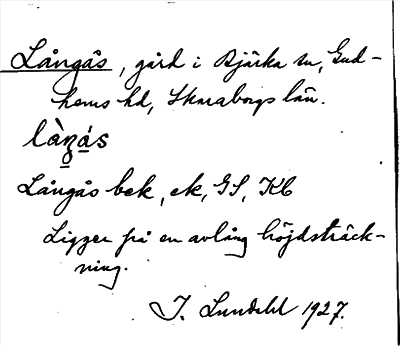 Långås, gård i Bjärka sn, Gud-
hems hd, Skaraborgs län.
làŋás
Långås bek, ek, GS, Kb
Ligger på en avlång höjdsträck-
ning.
I. Lundahl 1927.